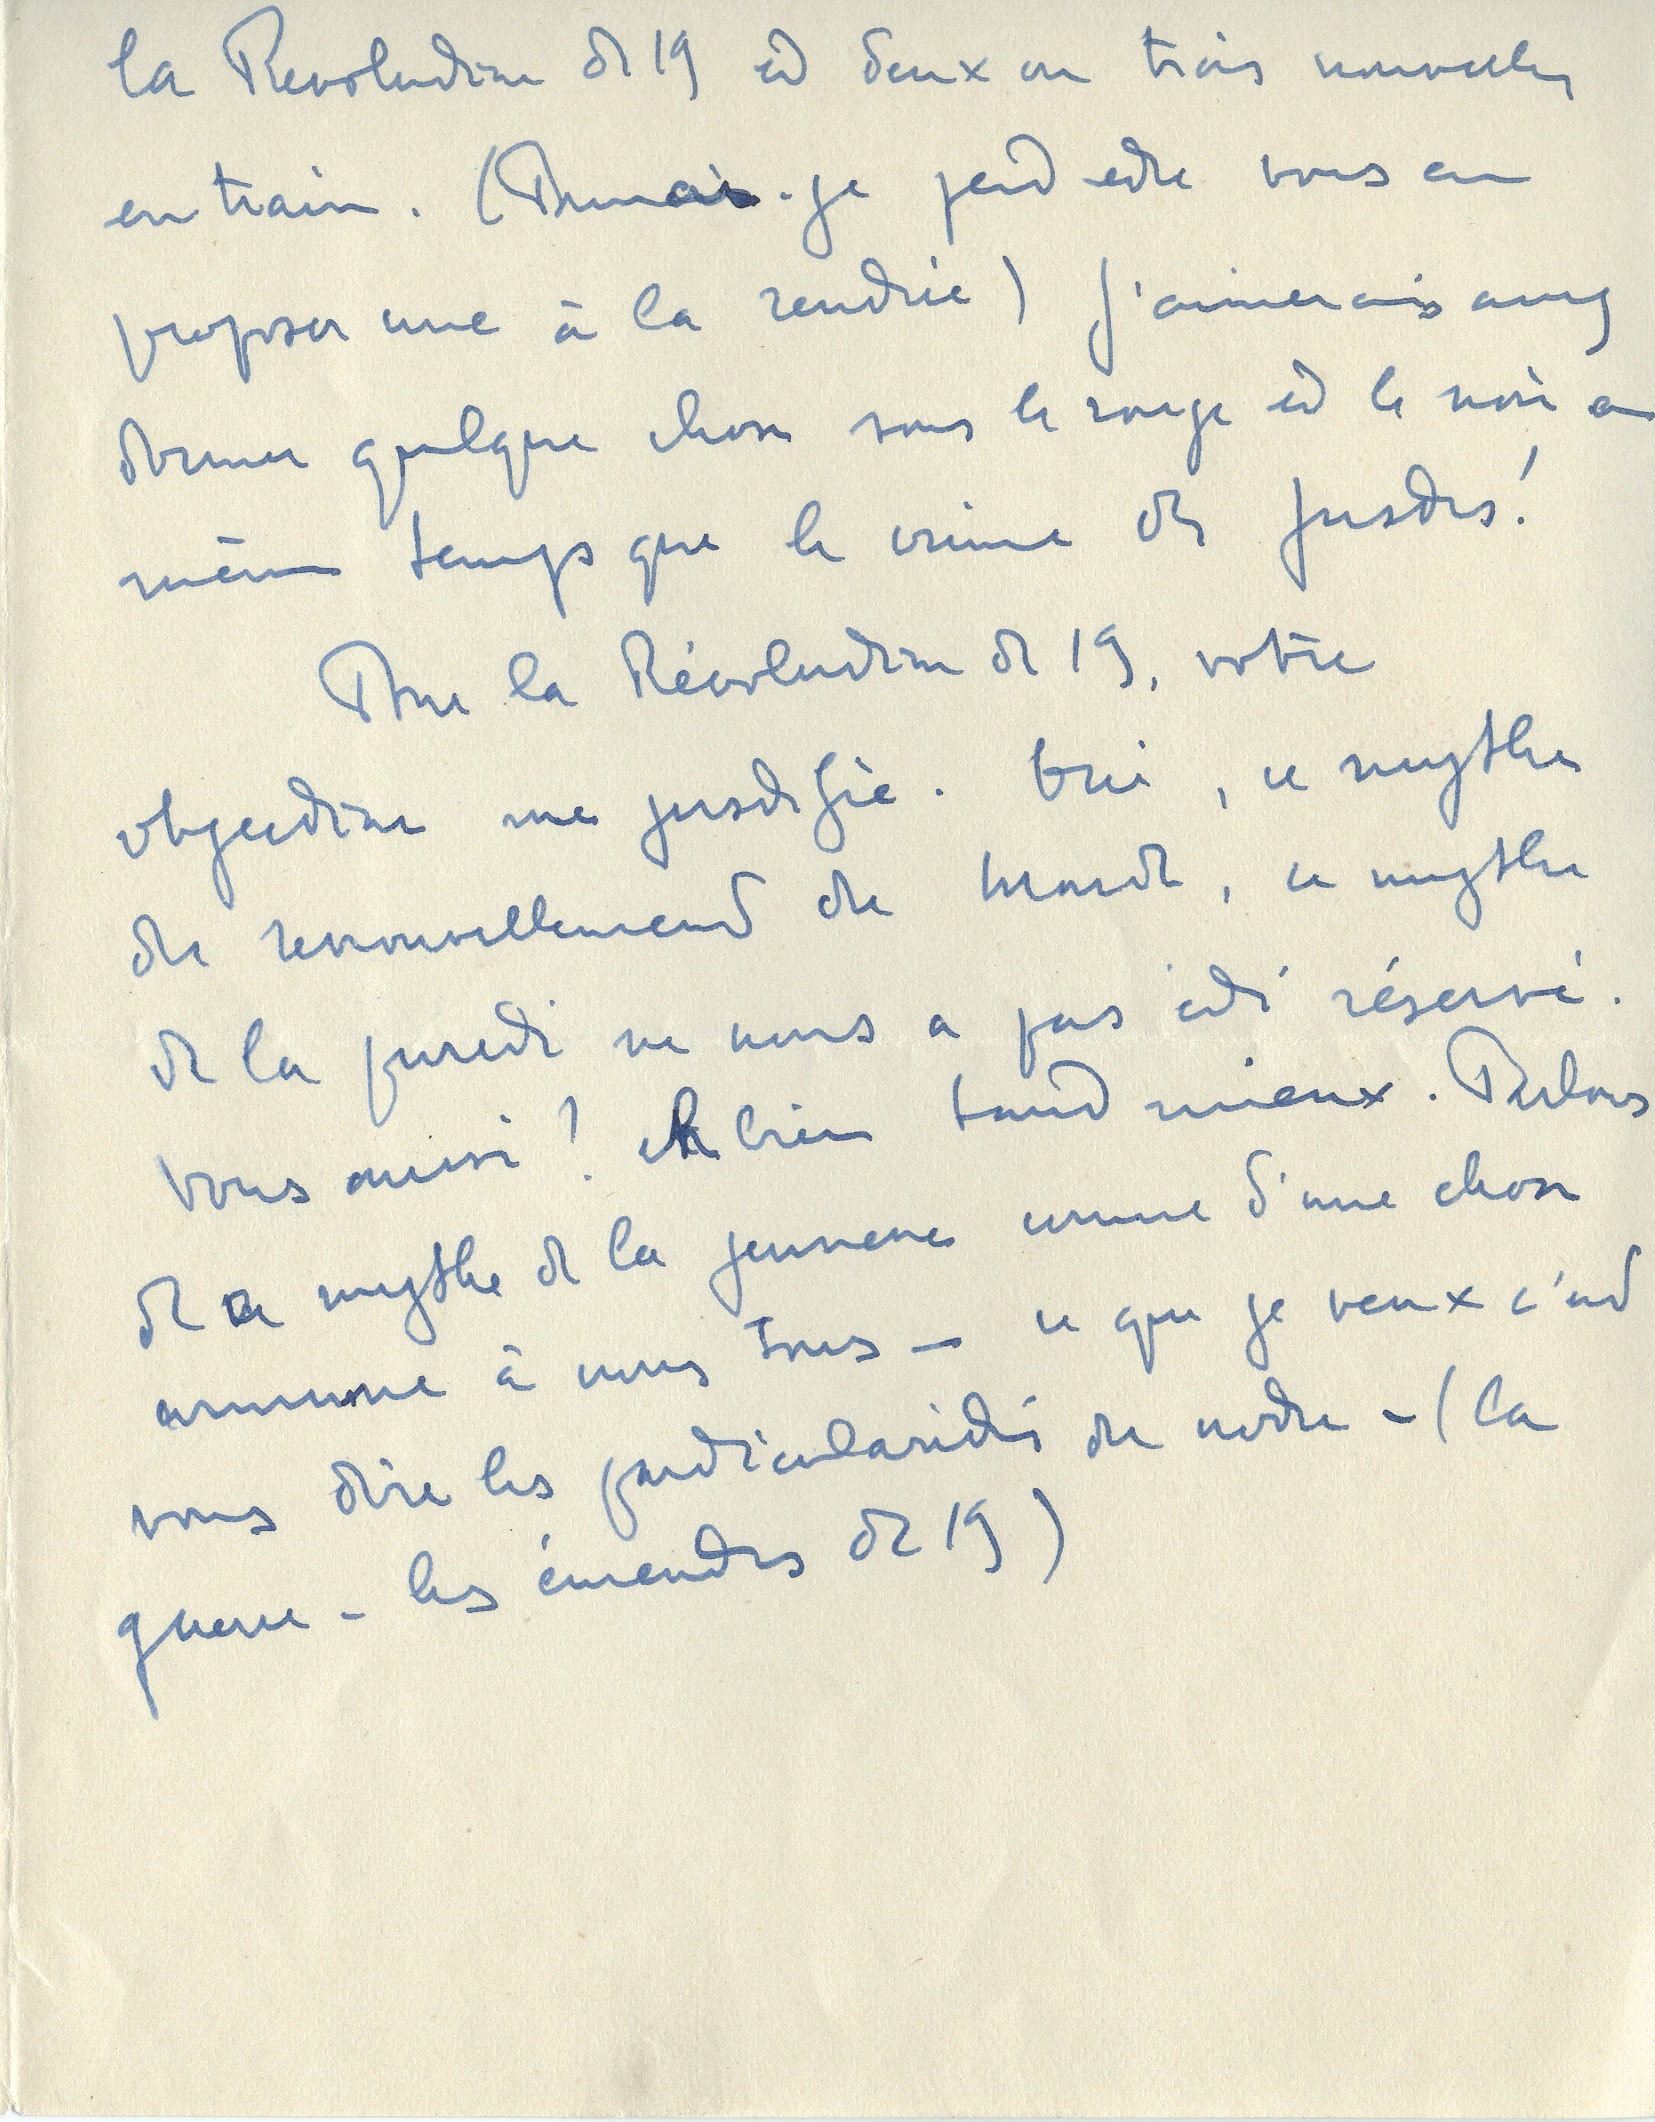 la Révolution de 19 et deux ou trois nouvelles
en train. (Pourrais-je peut etre vous en
proposer une à la rentrée) J'aimerais assez
donner quelque chose sous le rouge et le noir en
même temps que le crime des Justes!
Pour la Révolution de 19, votre
objection me justifie. Oui, ce mythe
du renouvellement du monde, ce mythe
de la pureté ne nous a pas été réservé.
Vous aussi? Eh bien tant mieux. Parlons
de ce mythe de la jeunesse comme d'une chose
commune à nous tous — ce que je veux c'est
vous dire les particularités du notre - (la
guerre - les émeutes de 19)